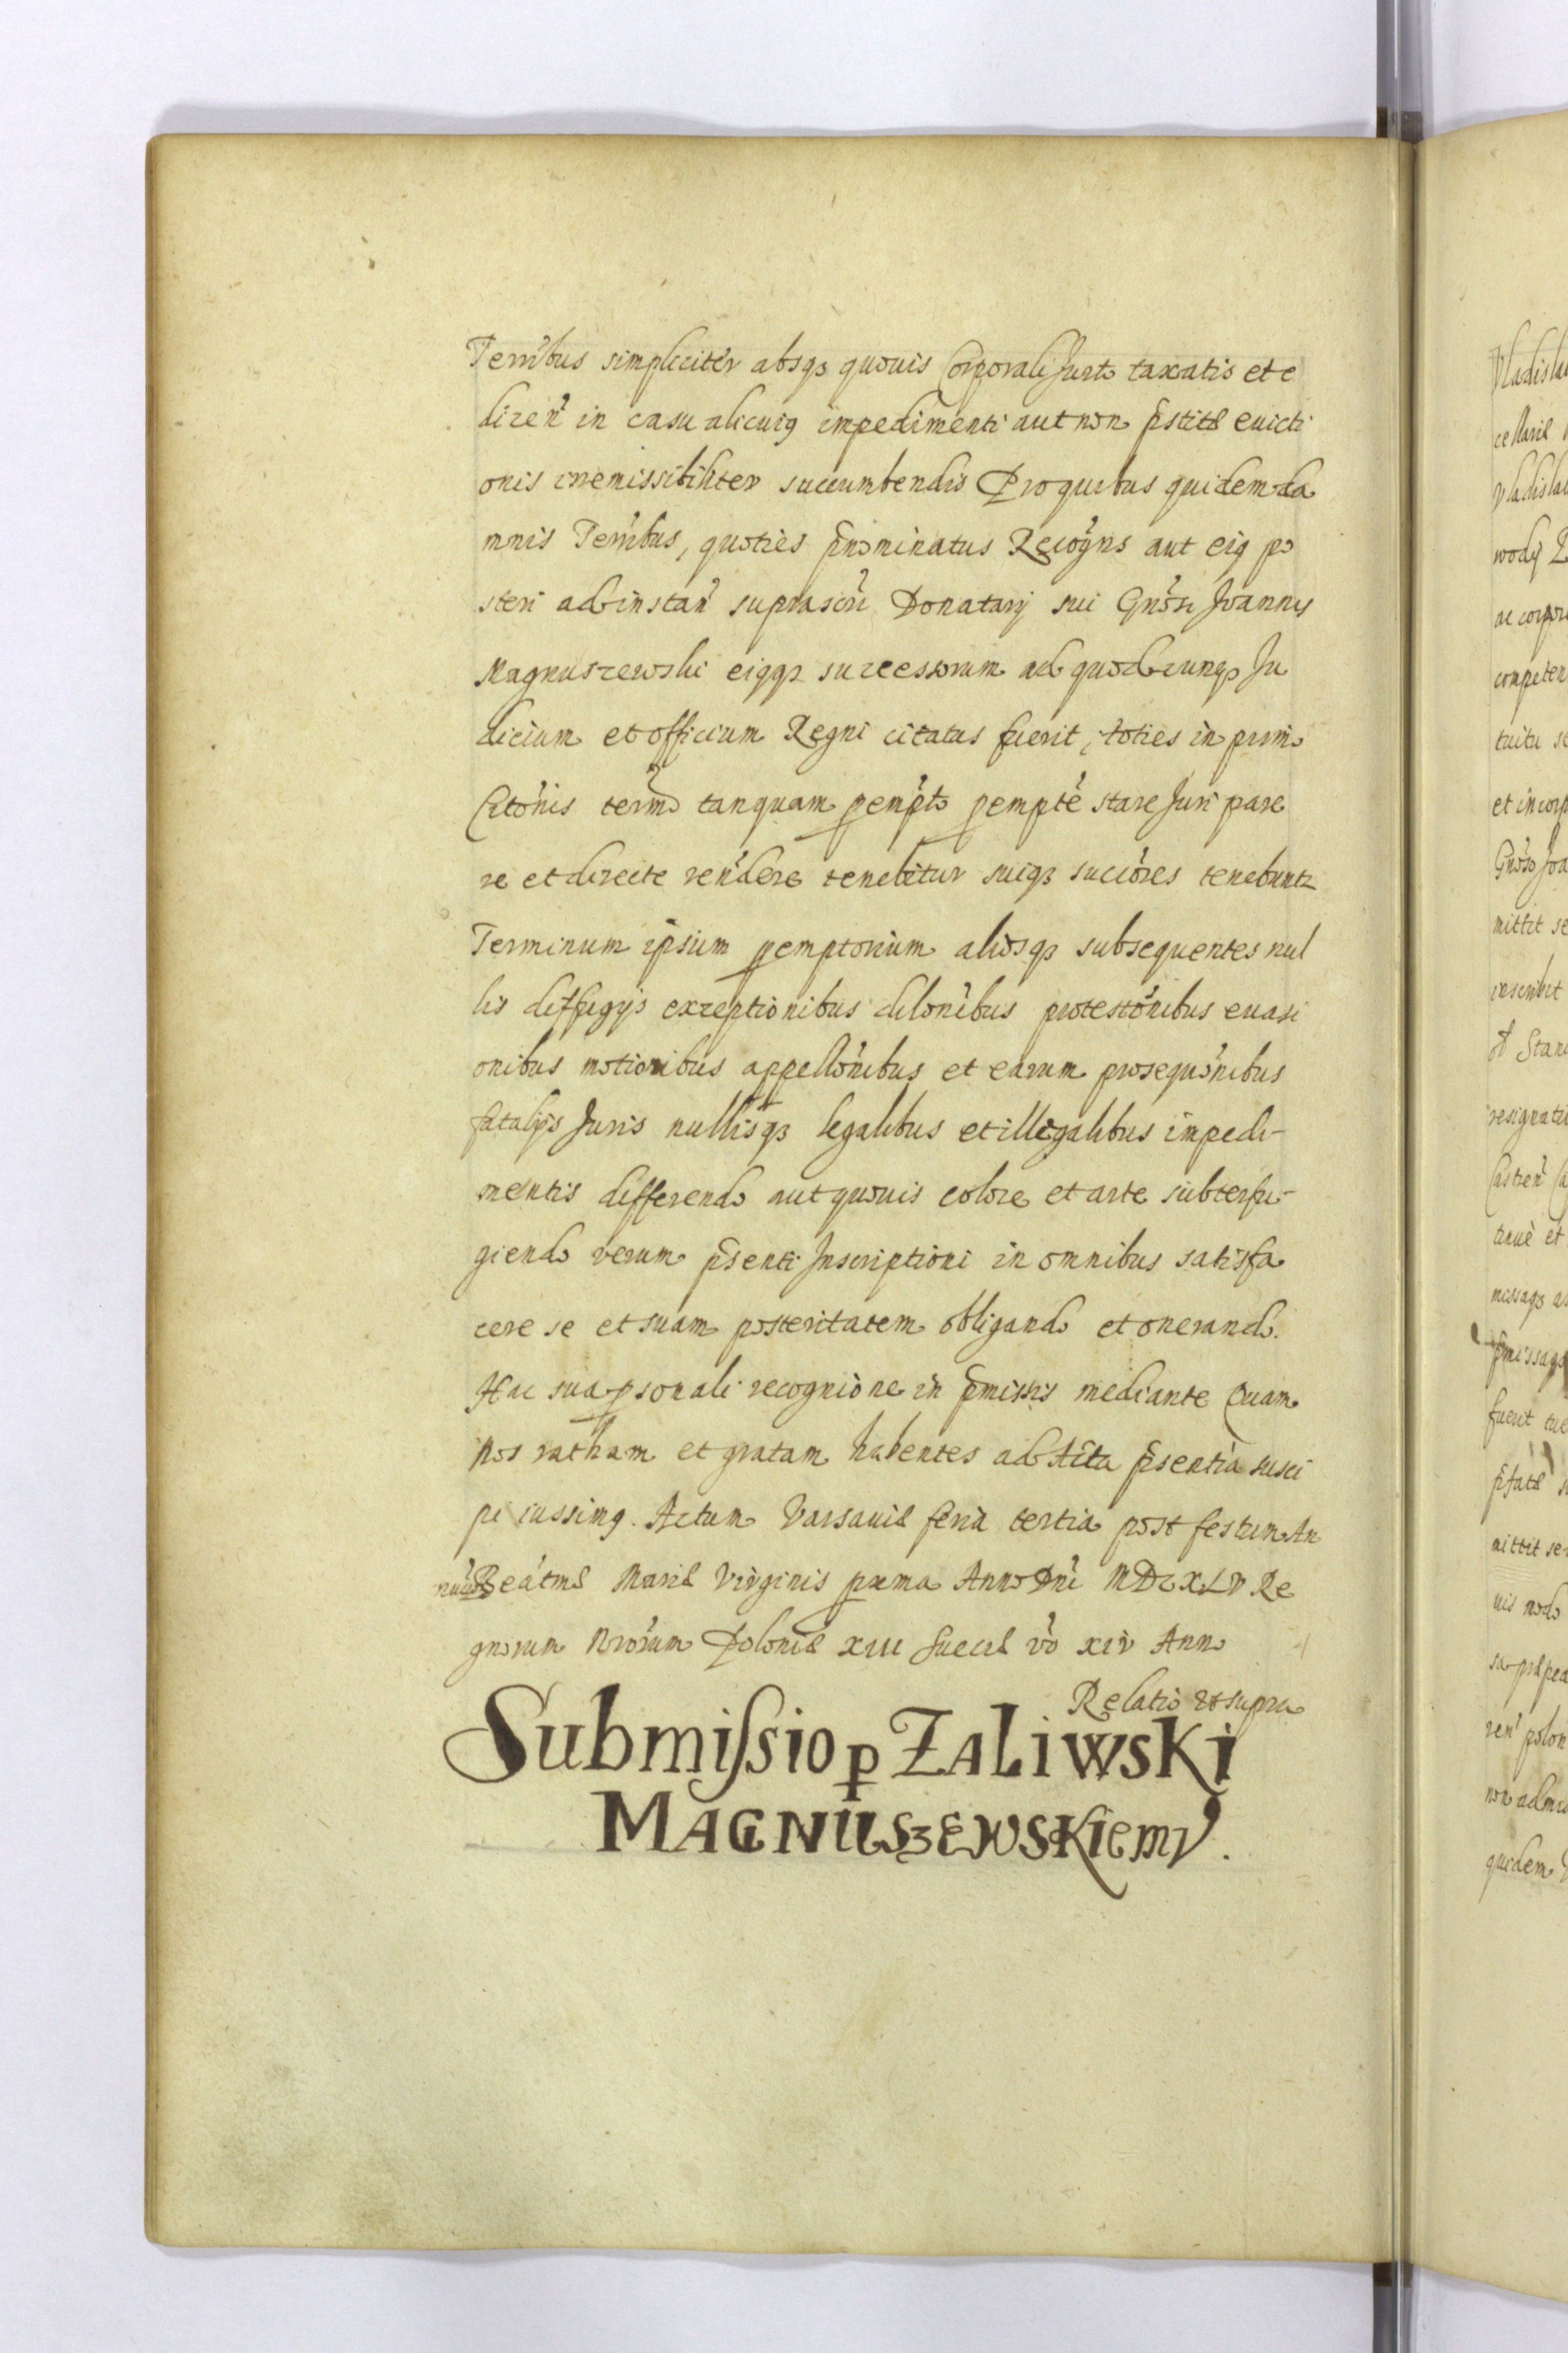 Terribus simpliciter absqз quouis Corporali Jurto taxatis et e
dizen in casu alicuig impedimenti aut non pstitae euicti
onis irremissibiliter succumbendis Pro quibus quidem da
mnis Terribus, quoties pnominatus Recogns aut eig po
steri ad instan suprascri Donatarij sui Gnosi Joannis
Magnuszewski eigqз successorum ad quodcunqз Ju
dicium et officium Regni citatus fuerit, toties in primo
Citonis termo tanquam pempto pempte stare Juri pare
re et directe rendere tenebitur suiqз succores tenebuntr
Terminum ipsum pemptorium aliosqз subsequentes nul
lis diffugijs exceptionibus dilonibus protestonibus euasi
onibus motionibus appellonibus et earum prosequonibus
fatalijs Juris nullisqз legalibus et illegalibus impedi-
mentis differendo aut quouis colore et arte subterfu-
giendo verum psenti Inscriptioni in omnibus satisfa
cere se et suam posteritatem obligando et onerando.
Hac sua psonali recognione in pmissis mediante Quam
nos ratham et gratam habentes ad Acta psentia susci
pi iussimg. Actum Varsauiae feria tertia post festum An
nuũ Beatmae Mariae Virginis prxma Anno Dni MDCXLV Re
gnorum Nrorum Poloniae XIII Sueciae vo XIV Anno
Relatio ut supra
Submiſsio p ZALiwsKi
MAGNUSzEWSKiemV.